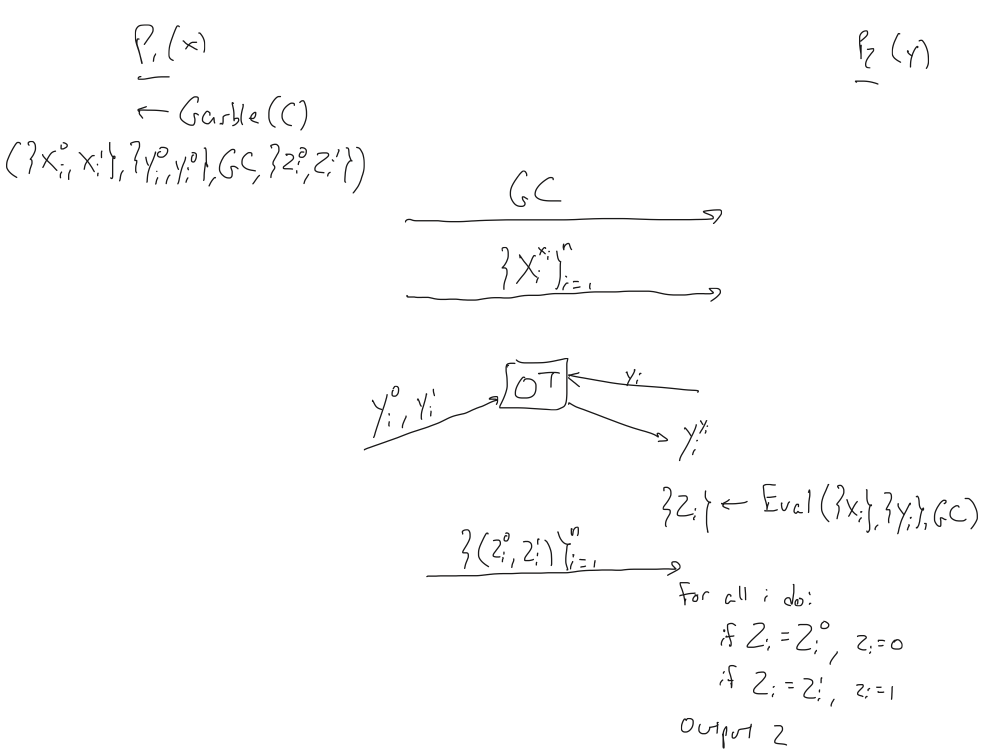 P₁(x)
P₂(y)
← Garble(C)
({Xᵢ⁰, Xᵢ¹}, {Yᵢ⁰, Yᵢ⁰}, GC, {Zᵢ⁰, Zᵢ¹})
GC
{Xᵢ^{xᵢ}}ᵢ₌₁ⁿ
OT
yᵢ
Yᵢ⁰, Yᵢ¹
Yᵢ^{yᵢ}
{Zᵢ} ← Eval({Xᵢ}, {Yᵢ}, GC)
{(Zᵢ⁰, Zᵢ¹)}ᵢ₌₁ⁿ
For all i do:
if Zᵢ = Zᵢ⁰, zᵢ=0
if Zᵢ = Zᵢ¹, zᵢ=1
Output z